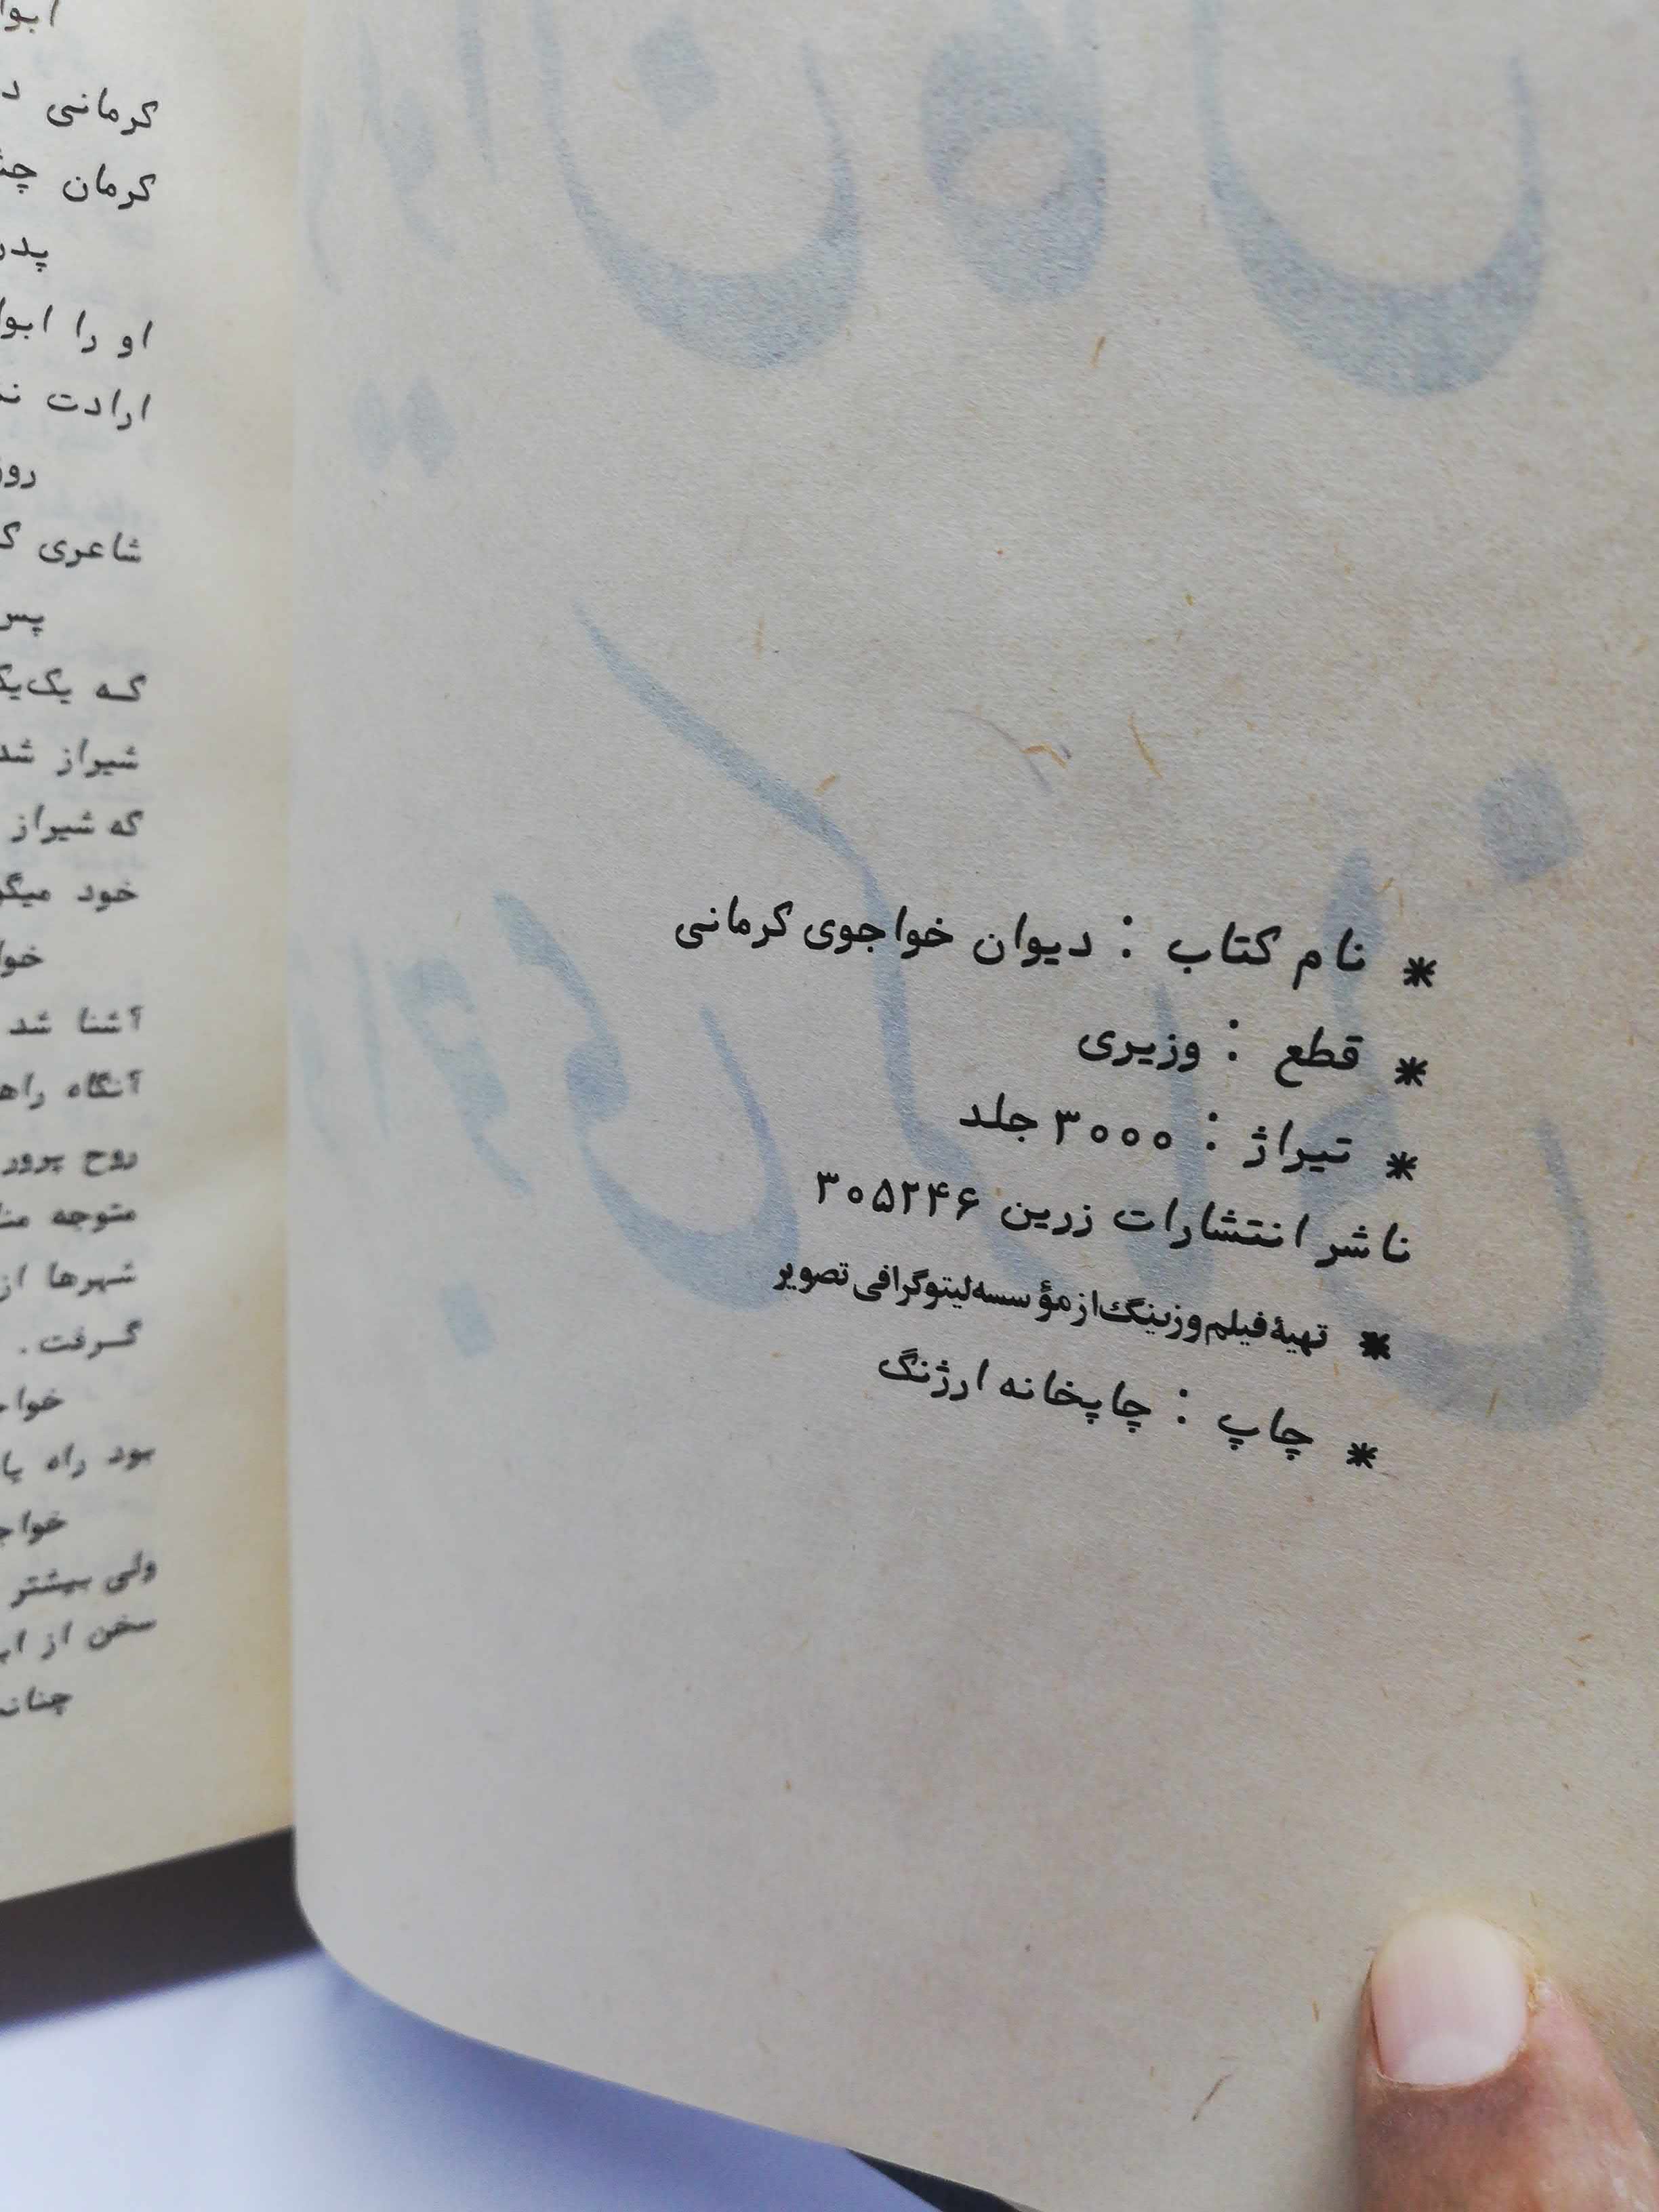 * نام کتاب : دیوان خواجوی کرمانی
* قطع : وزیری
* تیراژ : ۳۰۰۰ جلد
ناشر انتشارات زرین ۳۰۵۲۴۶
* تهیهٔ فیلم و زینگ از مؤسسه لیتوگرافی تصویر
* چاپ : چاپخانه ارژنگ
کرمانی
کرمان
او را
ارادت
شاعری
که
شیراز
که شیراز
خود
آشنا شد
آنگاه
روح پرور
متوجه
شهرها از
گرفت.
بود راه
ولی بیشتر
سخن از